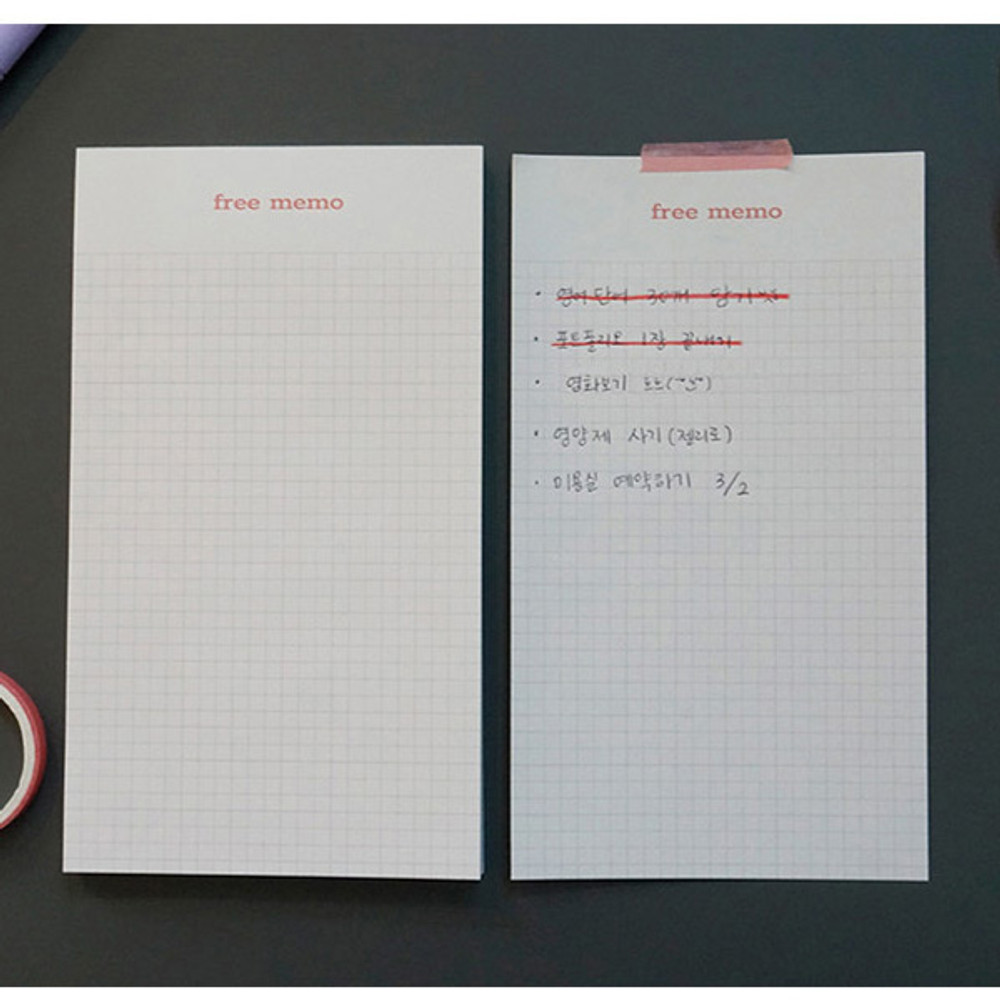 free memo
free memo
· 영어단어 30개
· 포트폴리오 1장 끝내기
· 영화보기
· 영양제 사기 (젤리로)
· 미용실 예약하기 3/2